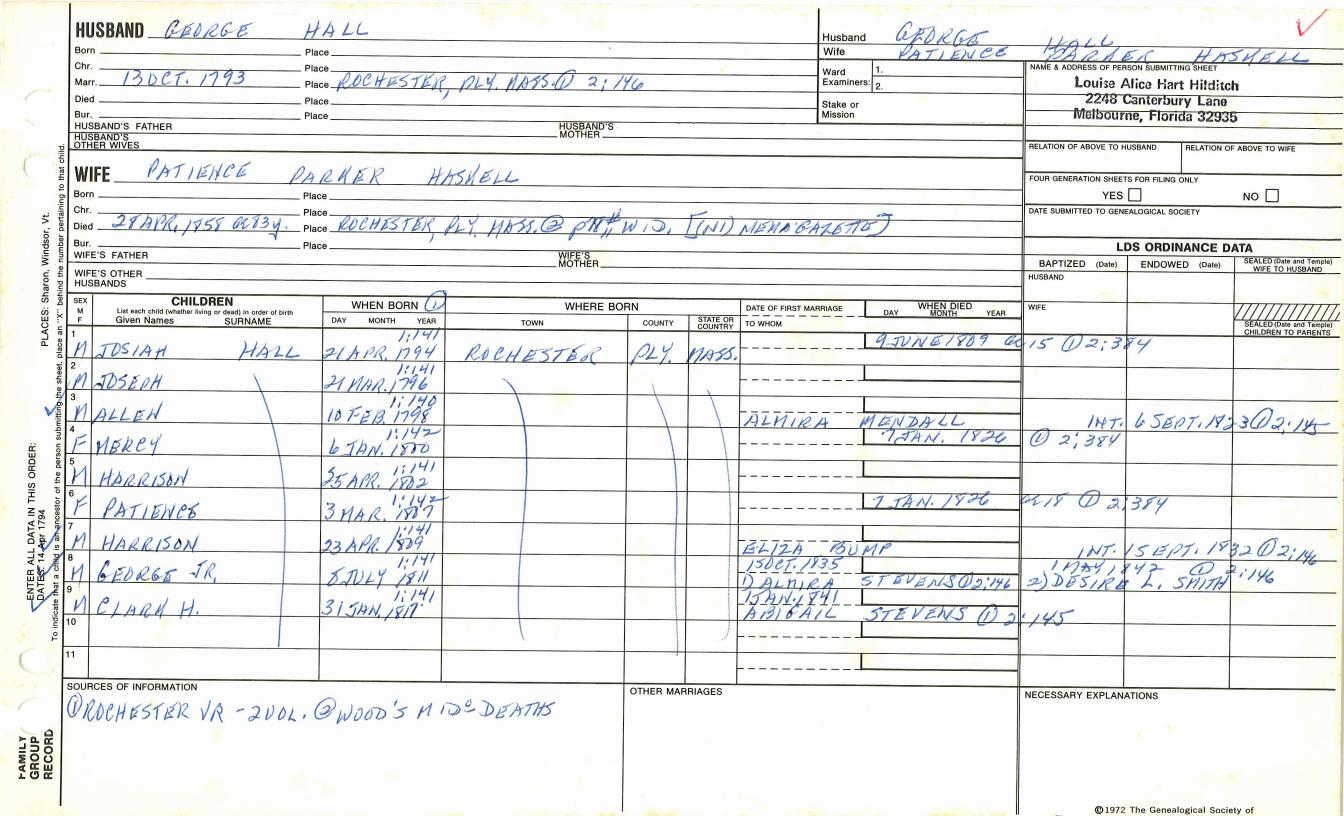 HUSBAND GEORGE HALL
Born Place
Chr. Place
Marr. 13 OCT. 1793 Place ROCHESTER, PLY. MASS. ① 2:146
Died Place
Bur. Place
HUSBAND'S FATHER HUSBAND'S MOTHER
HUSBAND'S OTHER WIVES
Husband GEORGE HALL
Wife PATIENCE PARKER HASKELL
Ward Examiners: 1.
2.
Stake or Mission
NAME & ADDRESS OF PERSON SUBMITTING SHEET
Louise Alice Hart Hilditch
2248 Canterbury Lane
Melbourne, Florida 32935
RELATION OF ABOVE TO HUSBAND RELATION OF ABOVE TO WIFE
FOUR GENERATION SHEETS FOR FILING ONLY
YES NO
DATE SUBMITTED TO GENEALOGICAL SOCIETY
WIFE PATIENCE PARKER HASKELL
Born Place
Chr. Place
Died 28 APR. 1858 ae 83y. Place ROCHESTER, PLY. MASS. ② WID. [(NI) GAZETTE]
Bur. Place
WIFE'S FATHER WIFE'S MOTHER
WIFE'S OTHER HUSBANDS
LDS ORDINANCE DATA
BAPTIZED (Date) ENDOWED (Date) SEALED (Date and Temple) WIFE TO HUSBAND
HUSBAND
WIFE
SEALED (Date and Temple) CHILDREN TO PARENTS
SEX M F CHILDREN WHEN BORN ① WHERE BORN DATE OF FIRST MARRIAGE WHEN DIED
List each child (whether living or dead) in order of birth
Given Names SURNAME DAY MONTH YEAR TOWN COUNTY STATE OR COUNTRY TO WHOM DAY MONTH YEAR
1 1:141 9 JUNE 1809 ae 15 ① 2:384
M JOSIAH HALL 21 APR. 1794 ROCHESTER PLY. MASS.
2 1:141
M JOSEPH 21 MAR. 1796
3 1:140
M ALLEN 10 FEB. 1798 ALMIRA MENDALL INT. 6 SEPT. 1823 ① 2:145
4 1:142 7 JAN. 1826 ① 2:384
F MERCY 6 JAN. 1800
5 1:141
M HARRISON 25 APR. 1802
6 1:142 7 JAN. 1826 ae 18 ① 2:384
F PATIENCE 3 MAR. 1807
7 1:141
M HARRISON 23 APR. 1809 ELIZA BUMP INT. 15 SEPT. 1832 ① 2:146
8 1:141 15 OCT. 1835 1 MAY 1842 ① 2:146
M GEORGE JR. 8 JULY 1811 1) ALMIRA STEVENS ① 2:146 2) DESIRE L. SMITH
9 1:141 1 JAN. 1841
M CLARK H. 31 JAN. 1817 ABIGAIL STEVENS ① 2:145
10
11
SOURCES OF INFORMATION
① ROCHESTER VR - 2 VOL. ② WOOD'S MIDo DEATHS
OTHER MARRIAGES
NECESSARY EXPLANATIONS
©1972 The Genealogical Society of
PLACES: Sharon, Windsor, Vt.
ENTER ALL DATA IN THIS ORDER:
DATES: 14 Apr 1794
To indicate that a child is an ancestor of the person submitting the sheet, place an "X" behind the number pertaining to that child.
FAMILY GROUP RECORD